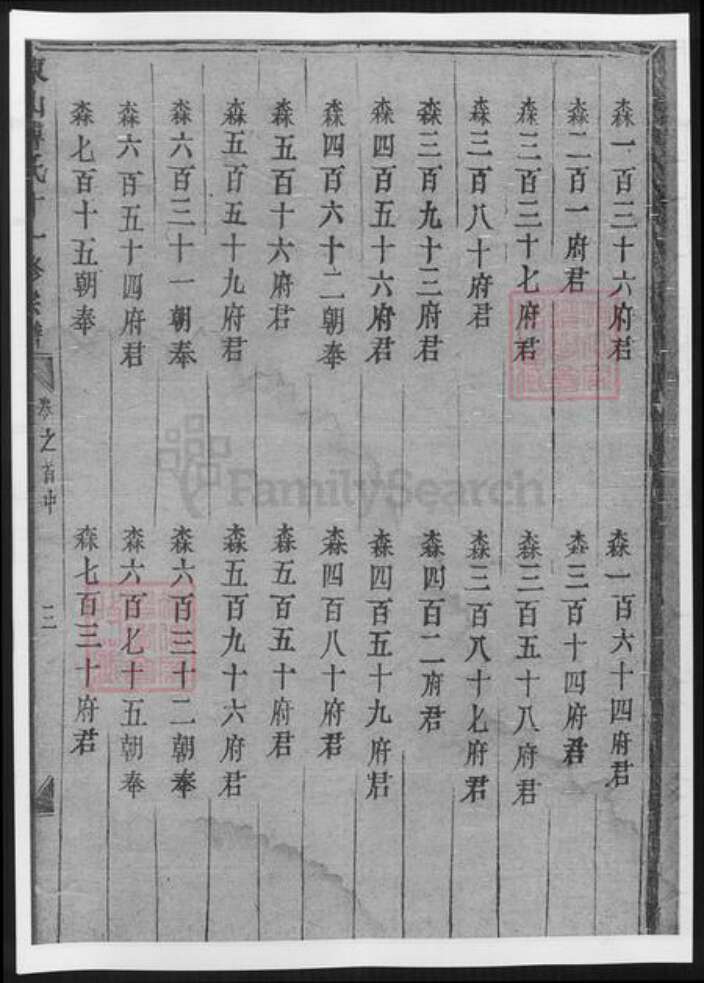 森一百三十六府君
森一百六十四府君
森二百一府君
森三百十四府君
森三百三十七府君
森三百五十八府君
森三百八十府君
森三百八十七府君
森三百九十三府君
森四百二府君
森四百五十六府君
森四百五十九府君
森四百六十二朝奉
森四百八十府君
森五百十六府君
森五百五十府君
森五百五十九府君
森五百九十六府君
森六百三十一朝奉
森六百三十二朝奉
森六百五十四府君
森六百七十五朝奉
森七百十五朝奉
森七百三十府君
氏十一修宗譜
卷之首中
三
FamilySearch